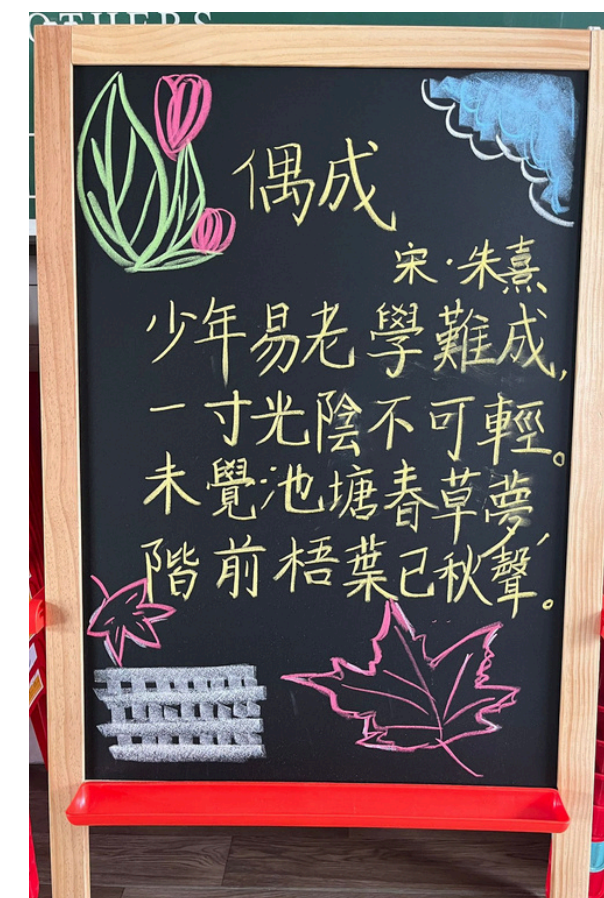 OTHERS
偶成
宋·朱熹
少年易老學難成,
一寸光陰不可輕。
未覺池塘春草夢,
階前梧葉已秋聲。